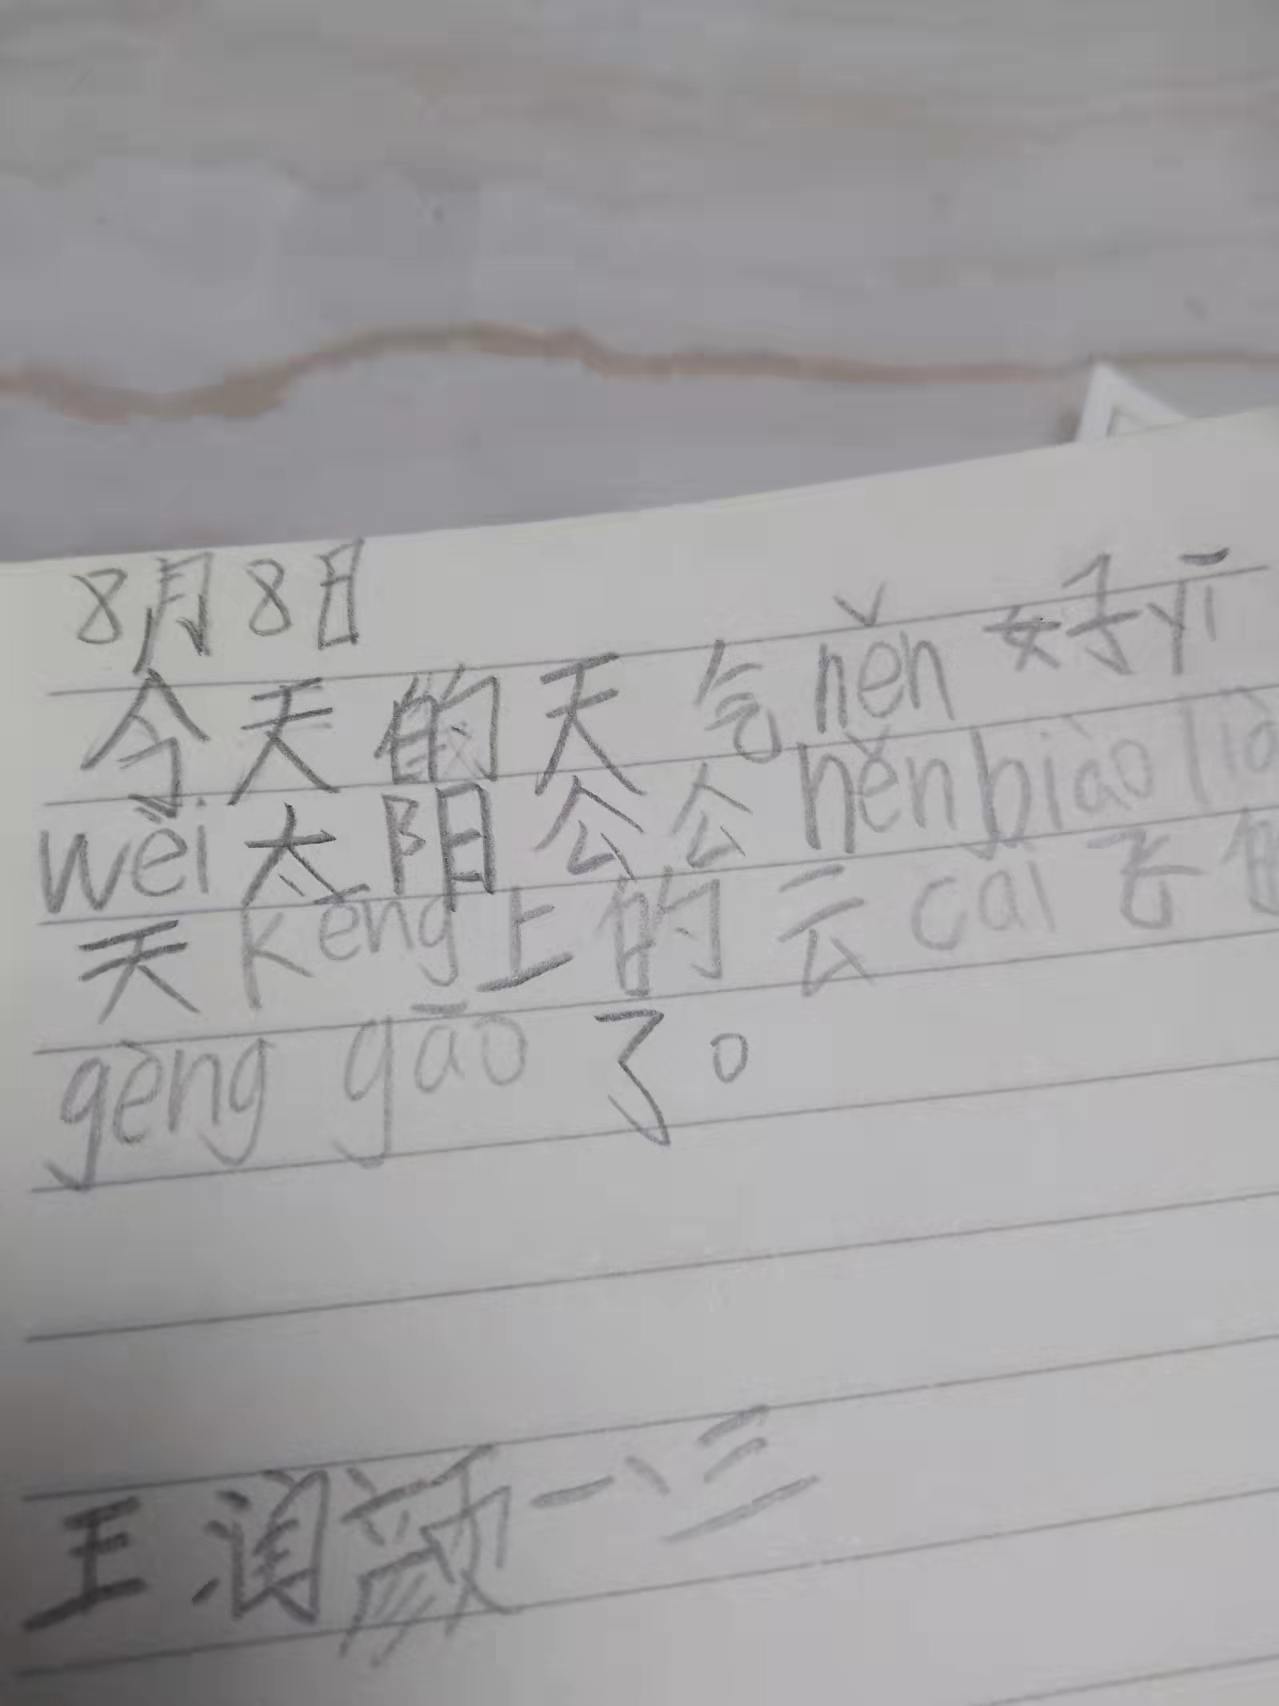 8月8日
今天的天气hěn 好yī
wèi太阳公公hěnbiào lià
天kēng上的云cai飞
gèng gāo了。
王润颜一、三